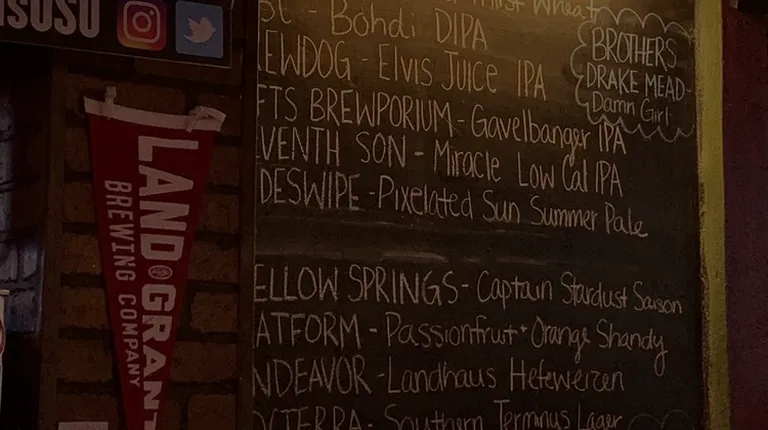 ISUSU
LAND GRANT
BREWING COMPANY
Bohdi DIPA
EWDOG - ELVIS JUICE IPA
FTS BREWPORIUM - Gavelbanger IPA
VENTH SON - Miracle Low Cal IPA
DESWIPE - Pixelated Sun Summer Pale
ELLOW SPRINGS - Captain Stardust Saison
ATFORM - Passionfruit + Orange Shandy
NDEAVOR - Landhaus Hefeweizen
CTERRA - Southern Terminus Lager
BROTHERS
DRAKE MEAD-
Damn Girl